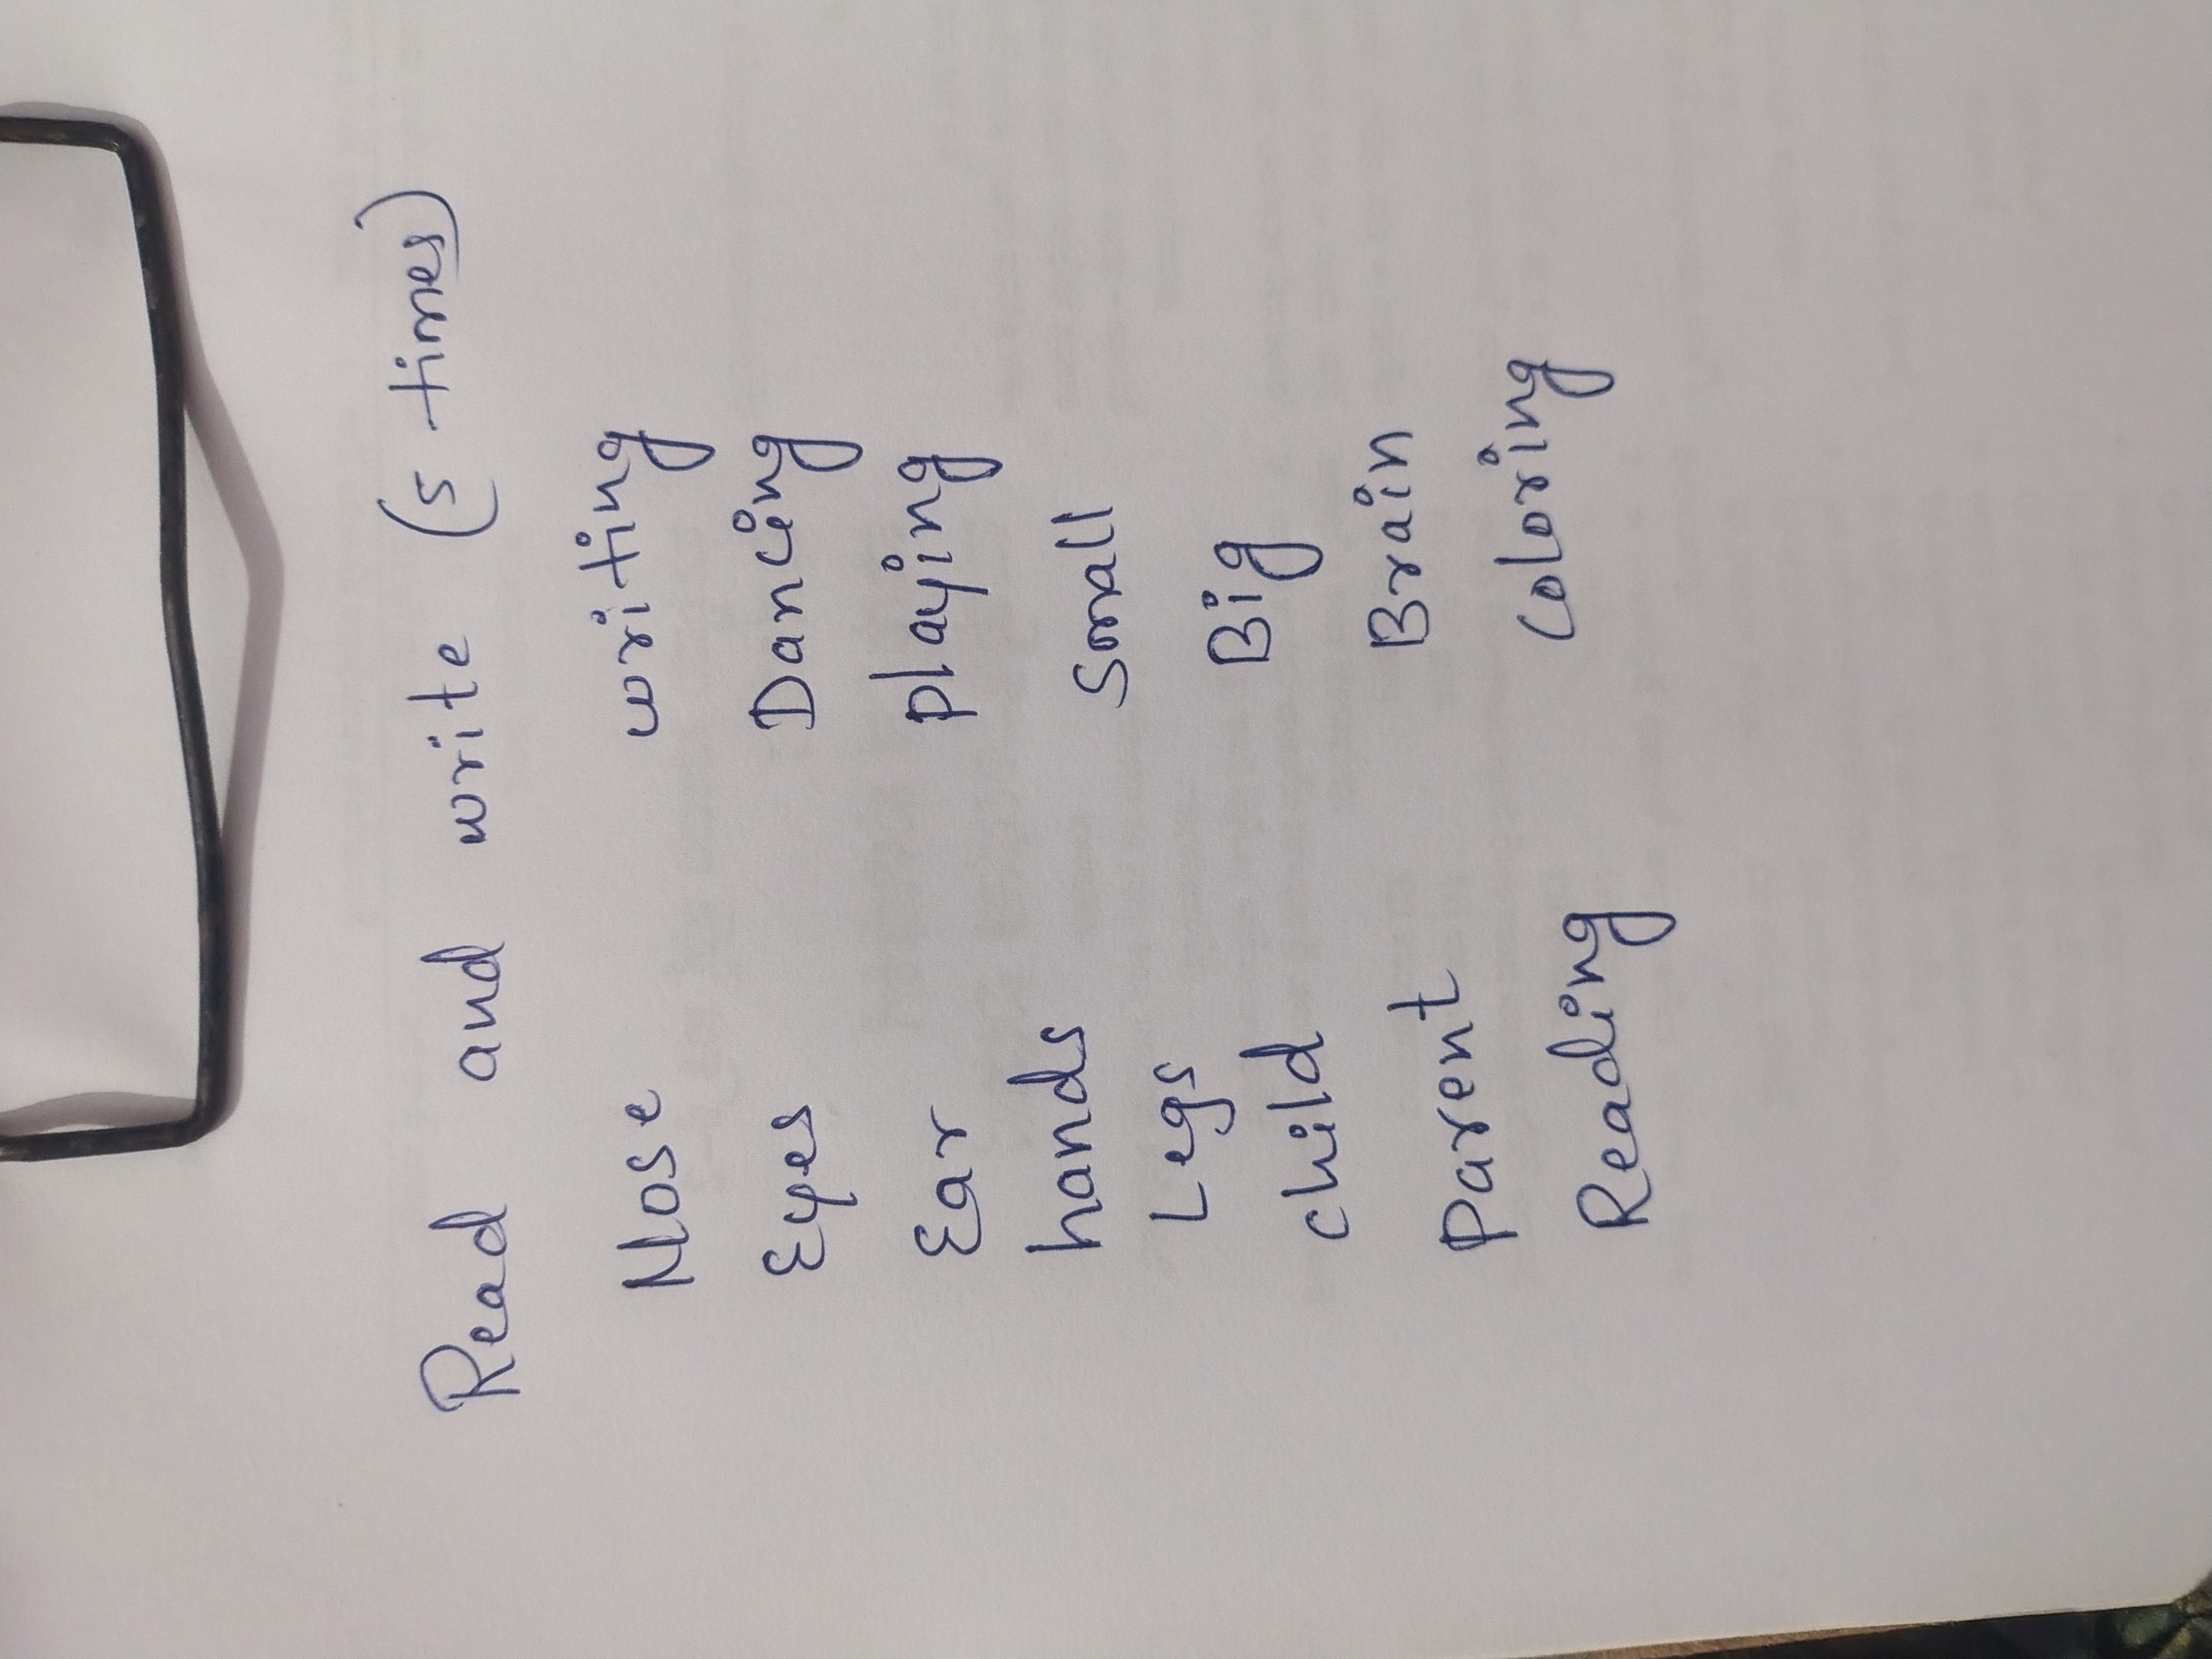 Read and write (5 times)
Nose writing
Eyes Dancing
Ear playing
hands small
Legs Big
child Brain
Parent coloring
Reading